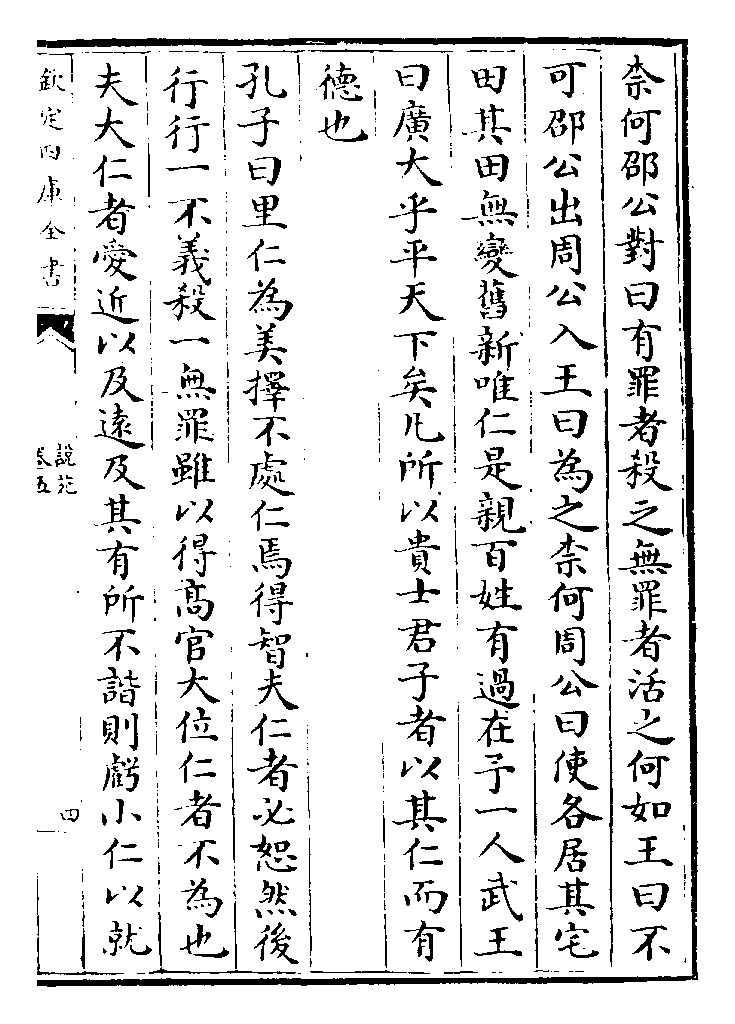 柰何邵公對曰有罪者殺之無罪者活之何如王曰不
可邵公出周公入王曰為之柰何周公曰使各居其宅
田其田無變舊新唯仁是親百姓有過在予一人武王
曰廣大乎平天下矣凡所以貴士君子者以其仁而有
德也
孔子曰里仁為美擇不處仁焉得智夫仁者必恕然後
行行一不義殺一無罪雖以得髙官大位仁者不為也
夫大仁者愛近以及逺及其有所不諧則虧小仁以就
欽定四庫全書
說苑
卷五
四